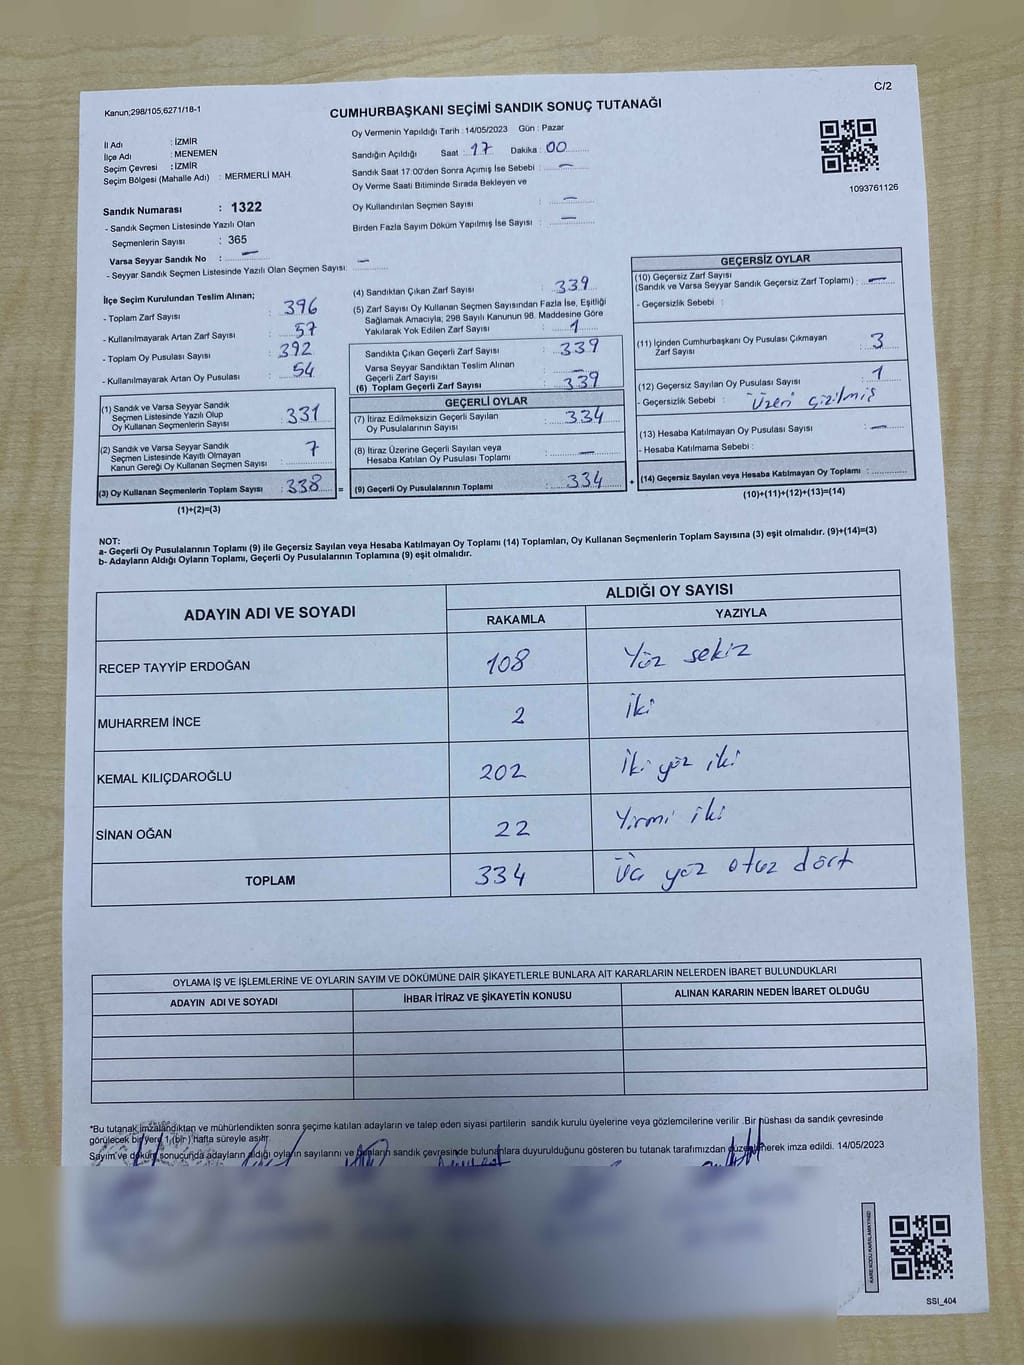 Kanun;298/105,6271/18-1
C/2
CUMHURBAŞKANI SEÇİMİ SANDIK SONUÇ TUTANAĞI
İl Adı : İZMİR
İlçe Adı : MENEMEN
Seçim Çevresi : İZMİR
Seçim Bölgesi (Mahalle Adı) : MERMERLİ MAH.
Sandık Numarası : 1322
- Sandık Seçmen Listesinde Yazılı Olan
Seçmenlerin Sayısı : 365
Varsa Seyyar Sandık No : —
- Seyyar Sandık Seçmen Listesinde Yazılı Olan Seçmen Sayısı: —
Oy Vermenin Yapıldığı Tarih : 14/05/2023 Gün : Pazar
Sandığın Açıldığı Saat : 17 Dakika : 00
Sandık Saat 17:00'den Sonra Açımış İse Sebebi : —
Oy Verme Saati Bitiminde Sırada Bekleyen ve
Oy Kullandırılan Seçmen Sayısı : —
Birden Fazla Sayım Döküm Yapılmış İse Sayısı : —
1093761126
İlçe Seçim Kurulundan Teslim Alınan;
- Toplam Zarf Sayısı : 396
- Kullanılmayarak Artan Zarf Sayısı : 57
- Toplam Oy Pusulası Sayısı : 392
- Kullanılmayarak Artan Oy Pusulası : 54
(1) Sandık ve Varsa Seyyar Sandık
Seçmen Listesinde Yazılı Olup
Oy Kullanan Seçmenlerin Sayısı : 331
(2) Sandık ve Varsa Seyyar Sandık
Seçmen Listesinde Kayıtlı Olmayan
Kanun Gereği Oy Kullanan Seçmen Sayısı : 7
(3) Oy Kullanan Seçmenlerin Toplam Sayısı : 338 =
(1)+(2)=(3)
(4) Sandıktan Çıkan Zarf Sayısı : 339
(5) Zarf Sayısı Oy Kullanan Seçmen Sayısından Fazla İse, Eşitliği
Sağlamak Amacıyla; 298 Sayılı Kanunun 98. Maddesine Göre
Yakılarak Yok Edilen Zarf Sayısı : 1
Sandıkta Çıkan Geçerli Zarf Sayısı : 339
Varsa Seyyar Sandıktan Teslim Alınan
Geçerli Zarf Sayısı : —
(6) Toplam Geçerli Zarf Sayısı : 339
GEÇERLİ OYLAR
(7) İtiraz Edilmeksizin Geçerli Sayılan
Oy Pusulalarının Sayısı : 334
(8) İtiraz Üzerine Geçerli Sayılan veya
Hesaba Katılan Oy Pusulası Toplamı : —
(9) Geçerli Oy Pusulalarının Toplamı : 334 +
GEÇERSİZ OYLAR
(10) Geçersiz Zarf Sayısı
(Sandık ve Varsa Seyyar Sandık Geçersiz Zarf Toplamı) : —
- Geçersizlik Sebebi :
(11) İçinden Cumhurbaşkanı Oy Pusulası Çıkmayan
Zarf Sayısı : 3
(12) Geçersiz Sayılan Oy Pusulası Sayısı : 1
- Geçersizlik Sebebi : Üzeri çizilmiş
(13) Hesaba Katılmayan Oy Pusulası Sayısı : —
- Hesaba Katılmama Sebebi :
(14) Geçersiz Sayılan veya Hesaba Katılmayan Oy Toplamı :
(10)+(11)+(12)+(13)=(14)
NOT:
a- Geçerli Oy Pusulalarının Toplamı (9) ile Geçersiz Sayılan veya Hesaba Katılmayan Oy Toplamı (14) Toplamları, Oy Kullanan Seçmenlerin Toplam Sayısına (3) eşit olmalıdır. (9)+(14)=(3)
b- Adayların Aldığı Oyların Toplamı, Geçerli Oy Pusulalarının Toplamına (9) eşit olmalıdır.
ADAYIN ADI VE SOYADI
ALDIĞI OY SAYISI
RAKAMLA YAZIYLA
RECEP TAYYİP ERDOĞAN 108 Yüz sekiz
MUHARREM İNCE 2 İki
KEMAL KILIÇDAROĞLU 202 İki yüz iki
SİNAN OĞAN 22 Yirmi iki
TOPLAM 334 Üç yüz otuz dört
OYLAMA İŞ VE İŞLEMLERİNE VE OYLARIN SAYIM VE DÖKÜMÜNE DAİR ŞİKAYETLERLE BUNLARA AİT KARARLARIN NELERDEN İBARET BULUNDUKLARI
ADAYIN ADI VE SOYADI İHBAR İTİRAZ VE ŞİKAYETİN KONUSU ALINAN KARARIN NEDEN İBARET OLDUĞU
*Bu tutanak imzalandıktan ve mühürlendikten sonra seçime katılan adayların ve talep eden siyasi partilerin sandık kurulu üyelerine veya gözlemcilerine verilir. Bir nüshası da sandık çevresinde
görülecek bir yere 1 (bir) hafta süreyle asılır.
Sayım ve döküm sonucunda adayların aldığı oyların sayılarını ve bunların sandık çevresinde bulunanlara duyurulduğunu gösteren bu tutanak tarafımızdan düzenlenerek imza edildi. 14/05/2023
SSI_404